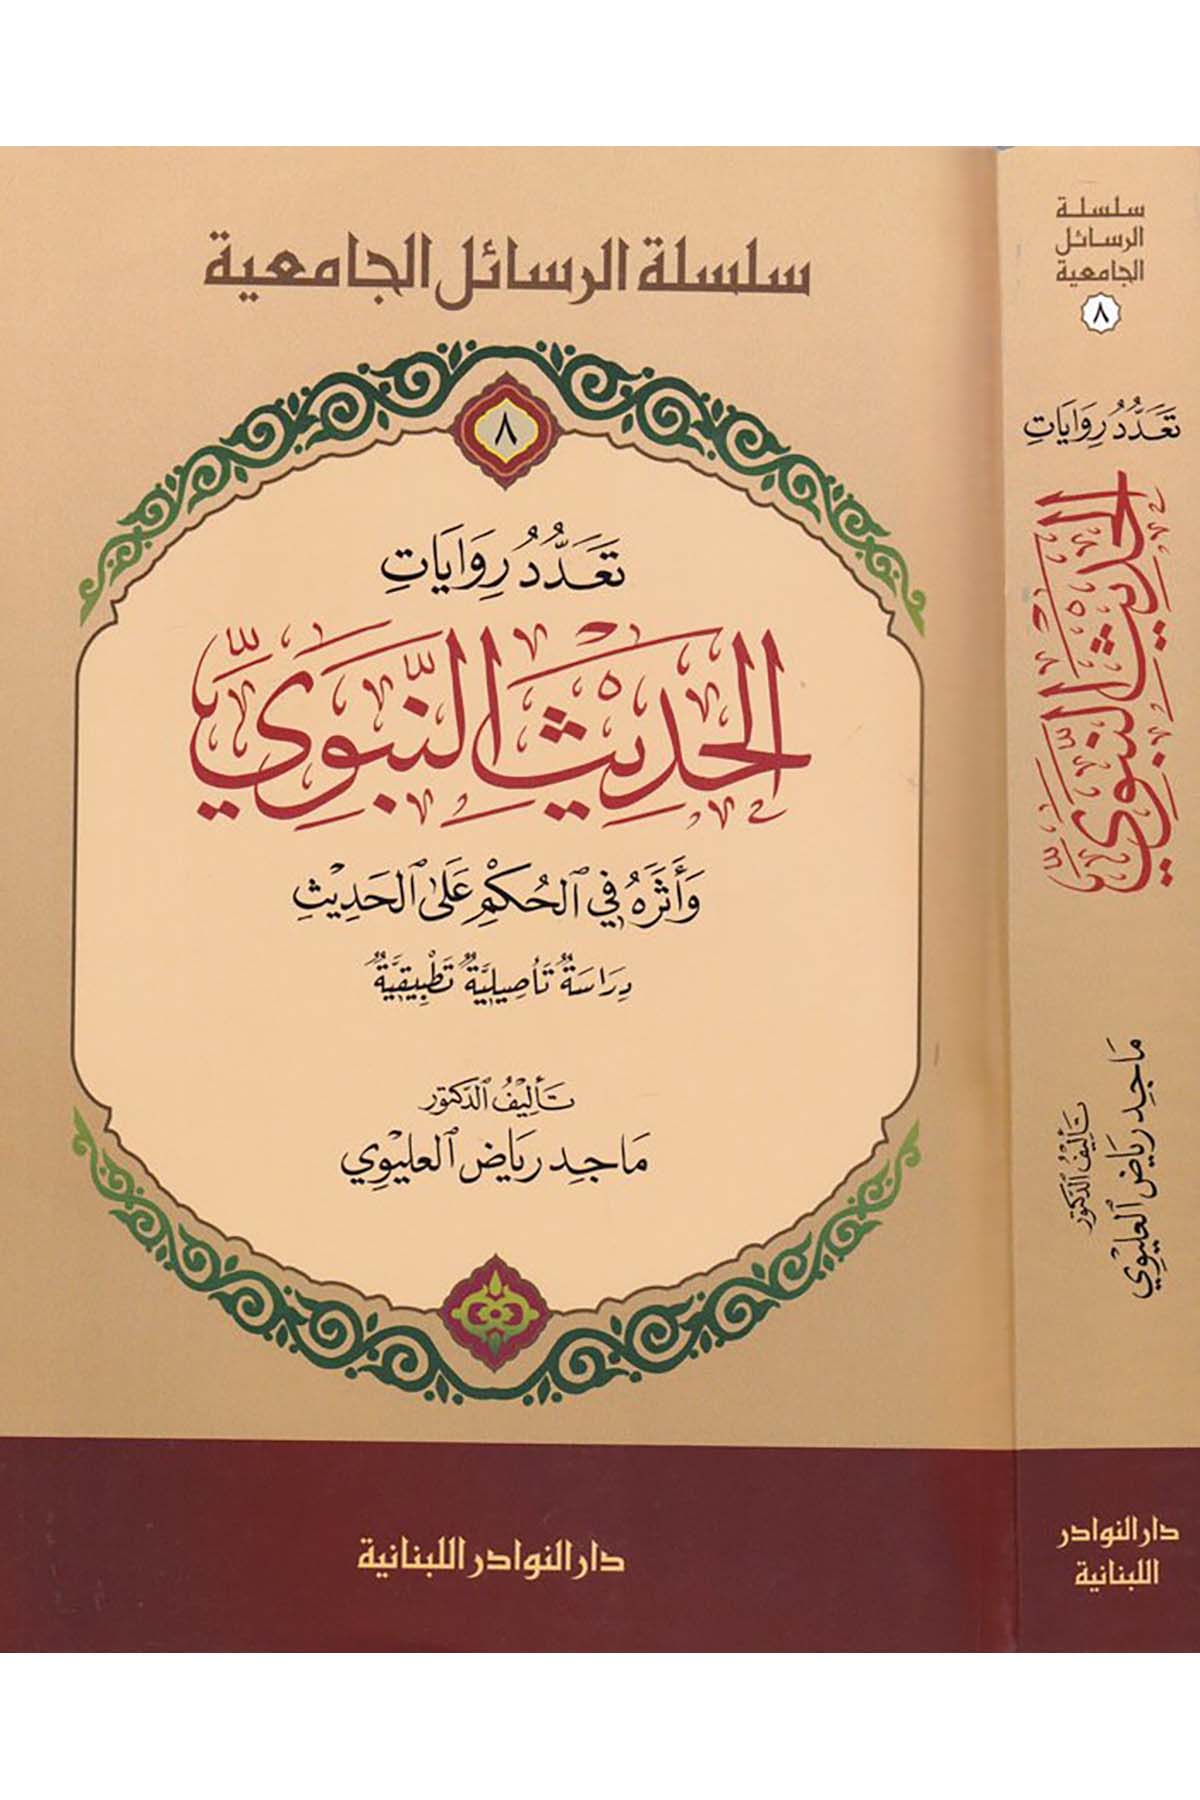 سلسلة الرسائل الجامعية
٨
تَعَدُّدُ رِوَايَاتِ
الحَدِيْثِ النَّبَوِيِّ
وَأَثَرُهُ فِي الحُكْمِ عَلَى الحَدِيْثِ
دِرَاسَةٌ تَأصِيلِيَّةٌ تَطْبِيقِيَّةٌ
تَأْلِيْفُ الدّكتور
مَاجِد رِيَاض العليْوِي
دار النوادر اللبنانية
سلسلة
الرسائل
الجامعية
٨
تَعَدُّدُ رِوَايَاتِ
الحَدِيْثِ النَّبَوِيِّ
تَأْلِيْفُ الدّكتور
مَاجِد رِيَاض العليْوِي
دار النوادر
اللبنانية